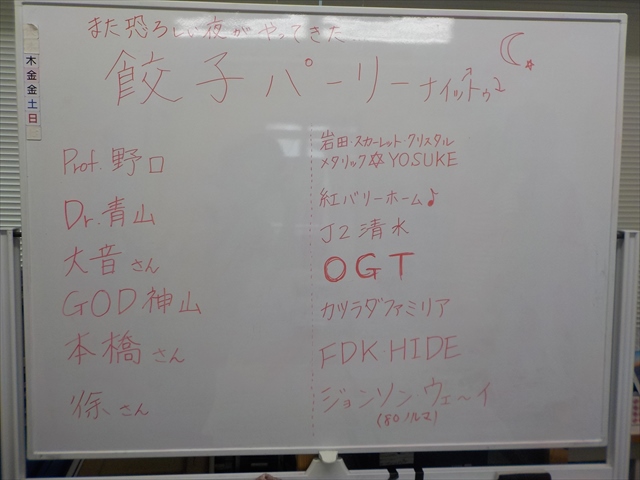 また恐ろしい夜がやってきた
餃子パーリーナイットゥ
木
金
金
土
日
Prof. 野口
Dr. 青山
大音さん
GOD 神山
本橋さん
徐さん
岩田・スカーレット・クリスタル
メタリック✡YOSUKE
紅バリーホーム♪
J2 清水
OGT
カツラダファミリア
FDK HIDE
ジョンソンウェ〜イ
(80ノルマ)